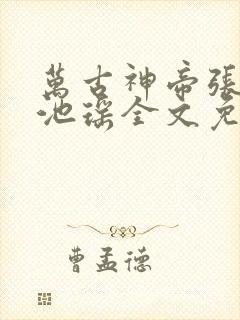 萬古神帝張
池瑤全文免
曹孟德